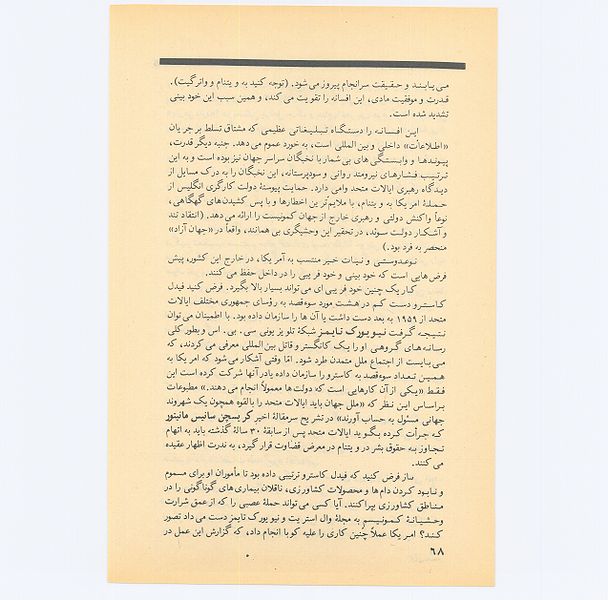 می یابند و حقیقت سرانجام پیروز می شود. (توجه کنید به ویتنام و واترگیت).
قدرت و موفقیت مادی، این افسانه را تقویت می کند، و همین سبب این خود بینی
تشدید شده است.
این افسانه را دستگاه تبلیغاتی عظیمی که مشتاق تسلط بر جریان
«اطلاعات» داخلی و بین المللی است، به خورد عموم می دهد. جنبه دیگر قدرت،
پیوندها و وابستگی های بی شمار با نخبگان سراسر جهان نیز بوده است و به این
ترتیب فشارهای نیرومند روانی و سودپرستانه، این نخبگان را به درک مسایل از
دیدگاه رهبری ایالات متحد وامی دارد. حمایت پیوستهٔ دولت کارگری انگلیس از
حملهٔ امریکا به ویتنام، با ملایم ترین اخطارها و با پس کشیدن های گهگاهی،
نوعاً واکنش دولتی و رهبری خارج از جهان کمونیست را ارائه می دهد. (انتقاد تند
و آشکار دولت سوئد، در تحقیر این وحشیگری بی همانند، واقعاً در «جهان آزاد»
منحصر به فرد بود.)
نوعدوستی و نیات خیر منتسب به آمریکا، در خارج این کشور، پیش
فرض هایی است که خود بینی و خود فریبی را در داخل حفظ می کنند.
کار یک چنین خود فریبی ای می تواند بسیار بالا بگیرد. فرض کنید فیدل
کاسترو دست کم در هشت مورد سوءقصد به رؤسای جمهوری مختلف ایالات
متحد از ۱۹۵۹ به بعد دست داشت یا آن ها را سازمان داده بود. با اطمینان می توان
نتیجه گرفت نیویورک تایمز شبکهٔ تلویزیونی سی. بی. اس و بطور کلی
رسانه های گروهی او را یک گانگستر و قاتل بین المللی معرفی می کردند، که
می بایست از اجتماع ملل متمدن طرد شود. امّا وقتی آشکار می شود که امریکا به
همین تعداد سوءقصد به کاسترو را سازمان داده یا در آنها شرکت کرده است این
فقط «یکی از آن کارهایی است که دولت ها معمولاً انجام می دهند.» مطبوعات
براساس این نظر که «ملل جهان باید ایالات متحد را بالقوه همچون یک شهروند
جهانی مسئول به حساب آورند» در تشریح سرمقالهٔ اخیر کریسچن ساینس مانیتور
که جرأت کرده بگوید ایالات متحد پس از سابقهٔ ۳۰ سالهٔ گذشته باید به اتهام
تجاوز به حقوق بشر در ویتنام در معرض قضاوت قرار گیرد، به ندرت اظهار عقیده
می کنند.
باز فرض کنید که فیدل کاسترو ترتیبی داده بود تا مأموران او برای مسموم
و نابود کردن دام ها و محصولات کشاورزی، ناقلان بیماری های گوناگونی را در
مناطق کشاورزی بپراکنند. آیا کسی می تواند حملهٔ عصبی را که از عمق شرارت
وحشیانهٔ کمونیسم به مجلهٔ وال استریت و نیویورک تایمز دست می داد تصور
کنند؟ امریکا عملاً چنین کاری را علیه کوبا انجام داد، که گزارش این عمل در
۶۸